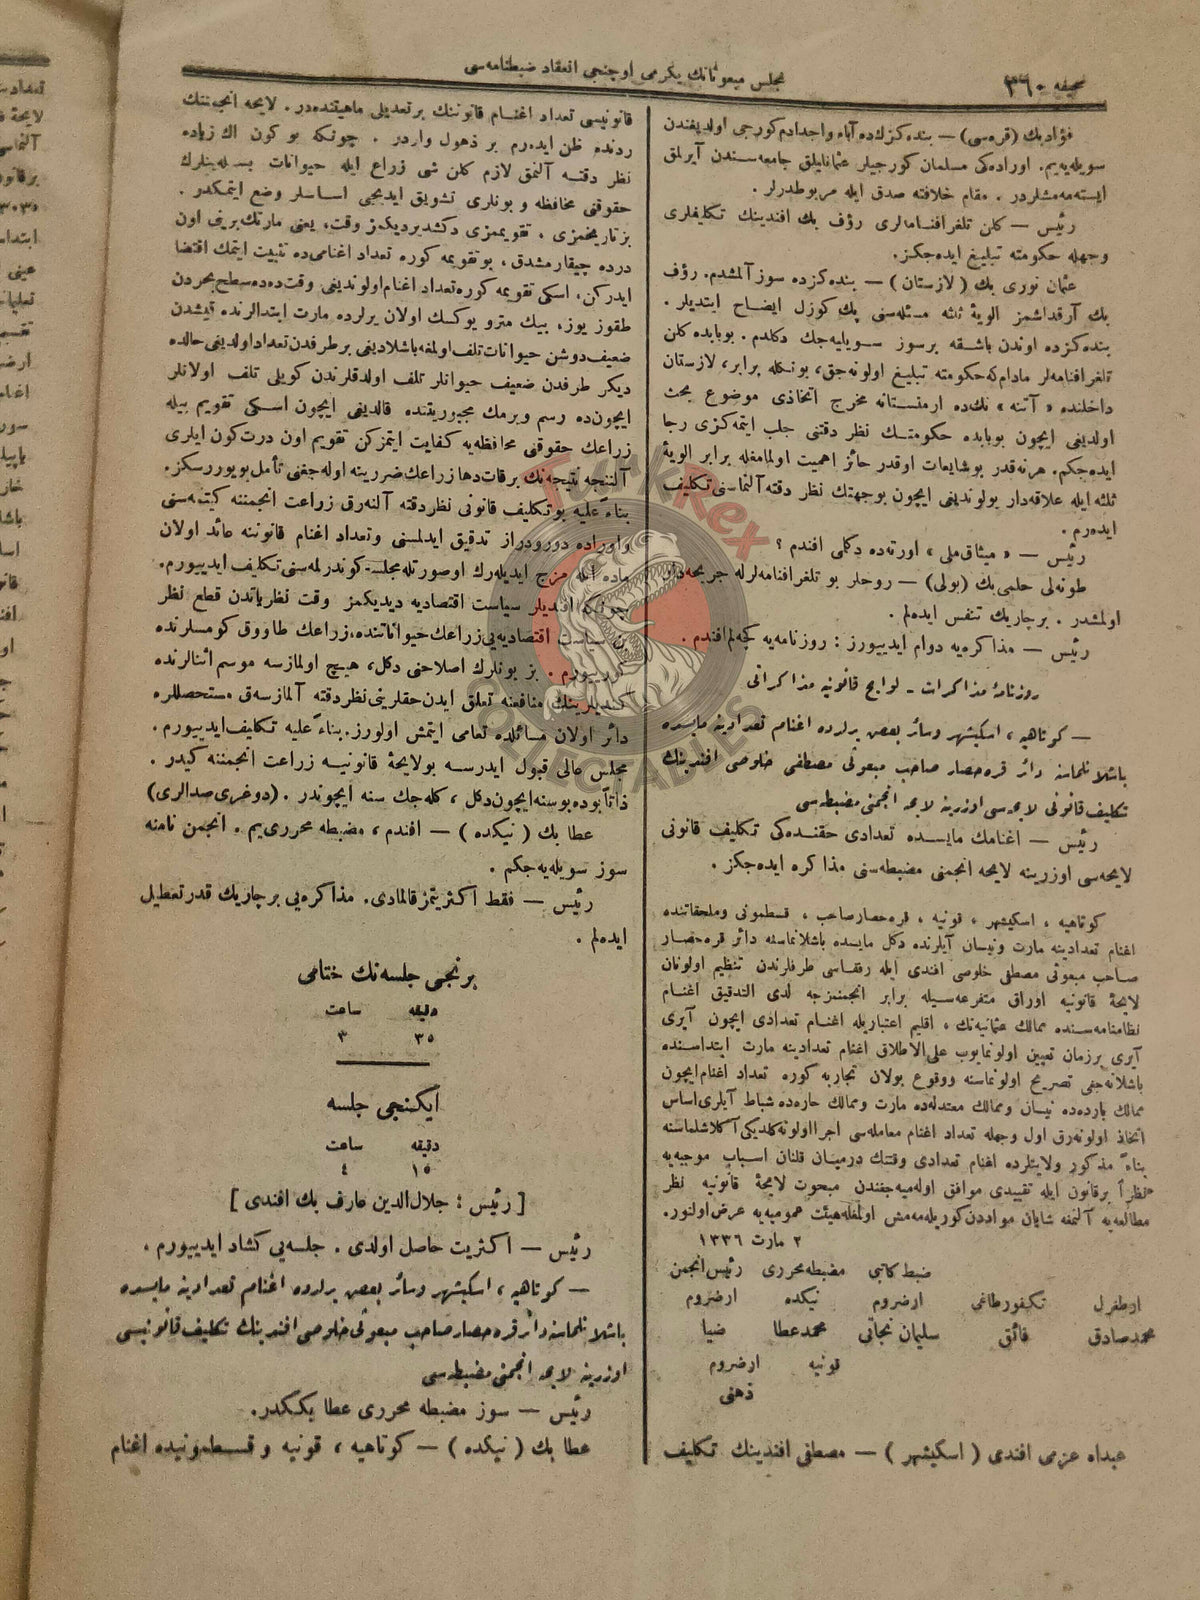 صحیفه ٣٦٠
مجلس مبعوثانك یكرمی اوچنجی انعقاد ضبطنامه‌سی
فؤاد بك (قره‌سی) — بنده كزك‌ده آباء واجدادم كورجی اولدیغندن
سویله‌یه‌یم. اوراده‌كی مسلمان كورجیلر عثمانلیلق جامعه‌سندن آیرلمق
ایسته‌مه‌مشلردر . مقام خلافته صدق ایله مربوطدرلر .
رئیس — كلن تلغرافنامه‌لری رؤف بك افندینك تكلیفلری
وجهله حكومته تبلیغ ایده‌جكز.
عثمان نوری بك ( لازستان ) — بنده كزده سوز آلمشدم. رؤف
بك آرقداشمز الویهٔ ثلثه مسئله‌سنی پك كوزل ایضاح ایتدیلر .
بنده كزده اوندن باشقه برسوز سویلیه‌جك دكلدم . بوبابده كلن
تلغرافنامه‌لر مادام‌كه حكومته تبلیغ اولونه‌جق، بونكله برابر، لازستان
داخلنده « آتنه » نك‌ده ارمنستانه مخرج اتخاذی موضوع بحث
اولدیغی ایچون بوبابده حكومتك نظر دقتنی جلب ایتمه‌كزی رجا
ایده‌جكم. هرنه‌قدر بو شایعات اوقدر حائز اهمیت اولمامغله برابر الویهٔ
ثلثه ایله علاقه‌دار بولوندیغی ایچون بوجهتك نظر دقته آلنماسنی تكلیف
ایده‌رم .
رئیس — « میثاق ملی » اورته‌ده دكلمی افندم ؟
طونه‌لی حلمی بك (بولی) — روحلر بو تلغرافنامه‌لرله جریحه‌دار
اولمشدر . برچاریك تنفس ایده‌لم .
رئیس — مذاكره‌یه دوام ایدییورز : روزنامه‌یه كچه‌لم افندم .
روزنامهٔ مذاكرات - لوایح قانونیه مذاكراتی
— كوتاهیه ، اسكیشهر وسائر بعض یرلرده اغنام تعدادینه مایسده
باشلانلماسنه دائر قره‌حصار صاحب مبعوثی مصطفی خلوصی افندینك
تكلیف قانونی لایحه‌سی اوزرینه لایحه انجمنی مضبطه‌سی
رئیس — اغنامك مایسده تعدادی حقنده‌كی تكلیف قانونی
لایحه‌سی اوزرینه لایحه انجمنی مضبطه‌سنی مذاكره ایده‌جكز .
كوتاهیه ، اسكیشهر ، قونیه ، قره‌حصار صاحب ، قسطمونی وملحقاتنده
اغنام تعدادینه مارت ونیسان آیلرنده دكل مایسده باشلانماسنه دائر قره‌حصار
صاحب مبعوثی مصطفی خلوصی افندی ایله رفقاسی طرفلرندن تنظیم اولونان
لایحهٔ قانونیه اوراق متفرعه‌سیله برابر انجمنمزجه لدی التدقیق اغنام
نظامنامه‌سنده ممالك عثمانیه‌نك ، اقلیم اعتباریله اغنام تعدادی ایچون آیری
آیری برزمان تعیین اولونمایوب علی‌الاطلاق اغنام تعدادینه مارت ابتداسنده
باشلانه‌جغی تصریح اولونماسنه ووقوع بولان تجاربه كوره تعداد اغنام ایچون
ممالك بارده‌ده نیسان وممالك معتدله‌ده مارت وممالك حاره‌ده شباط آیلری اساس
اتخاذ اولونه‌رق اول وجهله تعداد اغنام معامله‌سی اجرا اولونه‌كلدیكی آكلاشلماسنه
بناءً مذكور ولایتلرده اغنام تعدادی وقتنك درمیان قلنان اسباب موجبه‌یه
نظراً برقانون ایله تقییدی موافق اوله‌میه‌جغندن مبحوث لایحهٔ قانونیه نظر
مطالعه‌یه آلنمغه شایان مواددن كوریله‌مه‌مش اولمغله هیئت عمومیه‌یه عرض اولنور.
٢ مارت ١٣٣٦
رئیس انجمن مضبطه محرری ضبط كاتبی
ارضروم نیكده ارضروم تكیفورطاغی ارطغرل
ضیا محمدعطا سلیمان نجاتی فائق محمدصادق
ارضروم قونیه
ذهنی
عبدالله عزمی افندی ( اسكیشهر ) — مصطفی افندینك تكلیف
قانونیسی تعداد اغنام قانوننك برتعدیلی ماهیتنده‌در . لایحه انجمننك
ردنده ظن ایده‌رم بر ذهول واردر . چونكه بو كون اك زیاده
نظر دقته آلنمق لازم كلن شی زراع ایله حیوانات بسله‌ینلرك
حقوقنی محافظه و بونلری تشویق ایدیجی اساسلر وضع ایتمكدر .
بز تاریخمزی ، تقویممزی دكشدیردیكمز وقت، یعنی مارتك برینی اون
درده چیقارمشدق ، بوتقویمه كوره تعداد اغنامی‌ده تثبیت ایتمك اقتضا
ایدركن، اسكی تقویمه كوره تعداد اغنام اولوندیغی وقت‌ده‌ده سطح بحردن
طقوز یوز، بیك مترو یوكسك اولان یرلرده مارت ابتدالرنده قیشدن
ضعیف دوشن حیوانات تلف اولمغه باشلادیغی برطرفدن تعداد اولدیغی حالده
دیكر طرفدن ضعیف حیوانلر تلف اولدقلرندن كویلی تلف اولانلر
ایچون‌ده رسم ویرمك مجبوریتنده قالدیغی ایچون اسكی تقویم بیله
زراعك حقوقنی محافظه‌یه كفایت ایتمزكن تقویم اون درت كون ایلری
آلننجه نتیجه‌نك برقات‌دها زراعك ضررینه اوله‌جغنی تأمل بویوررسكز.
بناءً علیه بوتكلیف قانونی نظردقته آلنه‌رق زراعت انجمننه كیتمه‌سنی
واوراده دورودراز تدقیق ایدلمسنی وتعداد اغنام قانوننه عائد اولان
ماده ایله مزج ایدیله‌رك اوصورتله مجلسه كوندرلمه‌سنی تكلیف ایدییورم.
چونكه افندیلر سیاست اقتصادیه دیدیكمز وقت نظریاتدن قطع نظر
بن سیاست اقتصادیه‌یی زراعك حیواناتنده، زراعك طاووق كومسلرنده
كورییورم . بز بونلرك اصلاحنی دكل، هیچ اولمازسه موسم اثنالرنده
كندیلرینك منافعنه تعلق ایدن حقلرینی نظردقته آلمازسه‌ق مستحصللره
دائر اولان مسائلده تعامی ایتمش اولورز. بناءً علیه تكلیف ایدییورم .
مجلس عالی قبول ایدرسه بولایحهٔ قانونیه زراعت انجمننه كیدر .
ذاتاً بوده بوسنه ایچون دكل ، كله‌جك سنه ایچوندر . (دوغری صدالری)
عطا بك ( نیكده ) — افندم ، مضبطه محرری‌یم . انجمن نامنه
سوز سویله‌یه‌جكم .
رئیس — فقط اكثریتمز قالمادی. مذاكره‌یی برچاریك قدر تعطیل
ایده‌لم .
برنجی جلسه‌نك ختامی
دقیقه ساعت
٣٥ ٣
ایكنجی جلسه
دقیقه ساعت
١٥ ٤
[ رئیس : جلال‌الدین عارف بك افندی ]
رئیس — اكثریت حاصل اولدی . جلسه‌یی كشاد ایدییورم .
— كوتاهیه ، اسكیشهر وسائر بعض یرلرده اغنام تعدادینه مایسده
باشلانلماسنه دائر قره‌حصار صاحب مبعوثی خلوصی افندینك تكلیف قانونیسی
اوزرینه لایحه انجمنی مضبطه‌سی
رئیس — سوز مضبطه محرری عطا بككدر.
عطا بك ( نیكده ) — كوتاهیه ، قونیه و قسطمونیده اغنام
TurkRex
COLLECTABLES